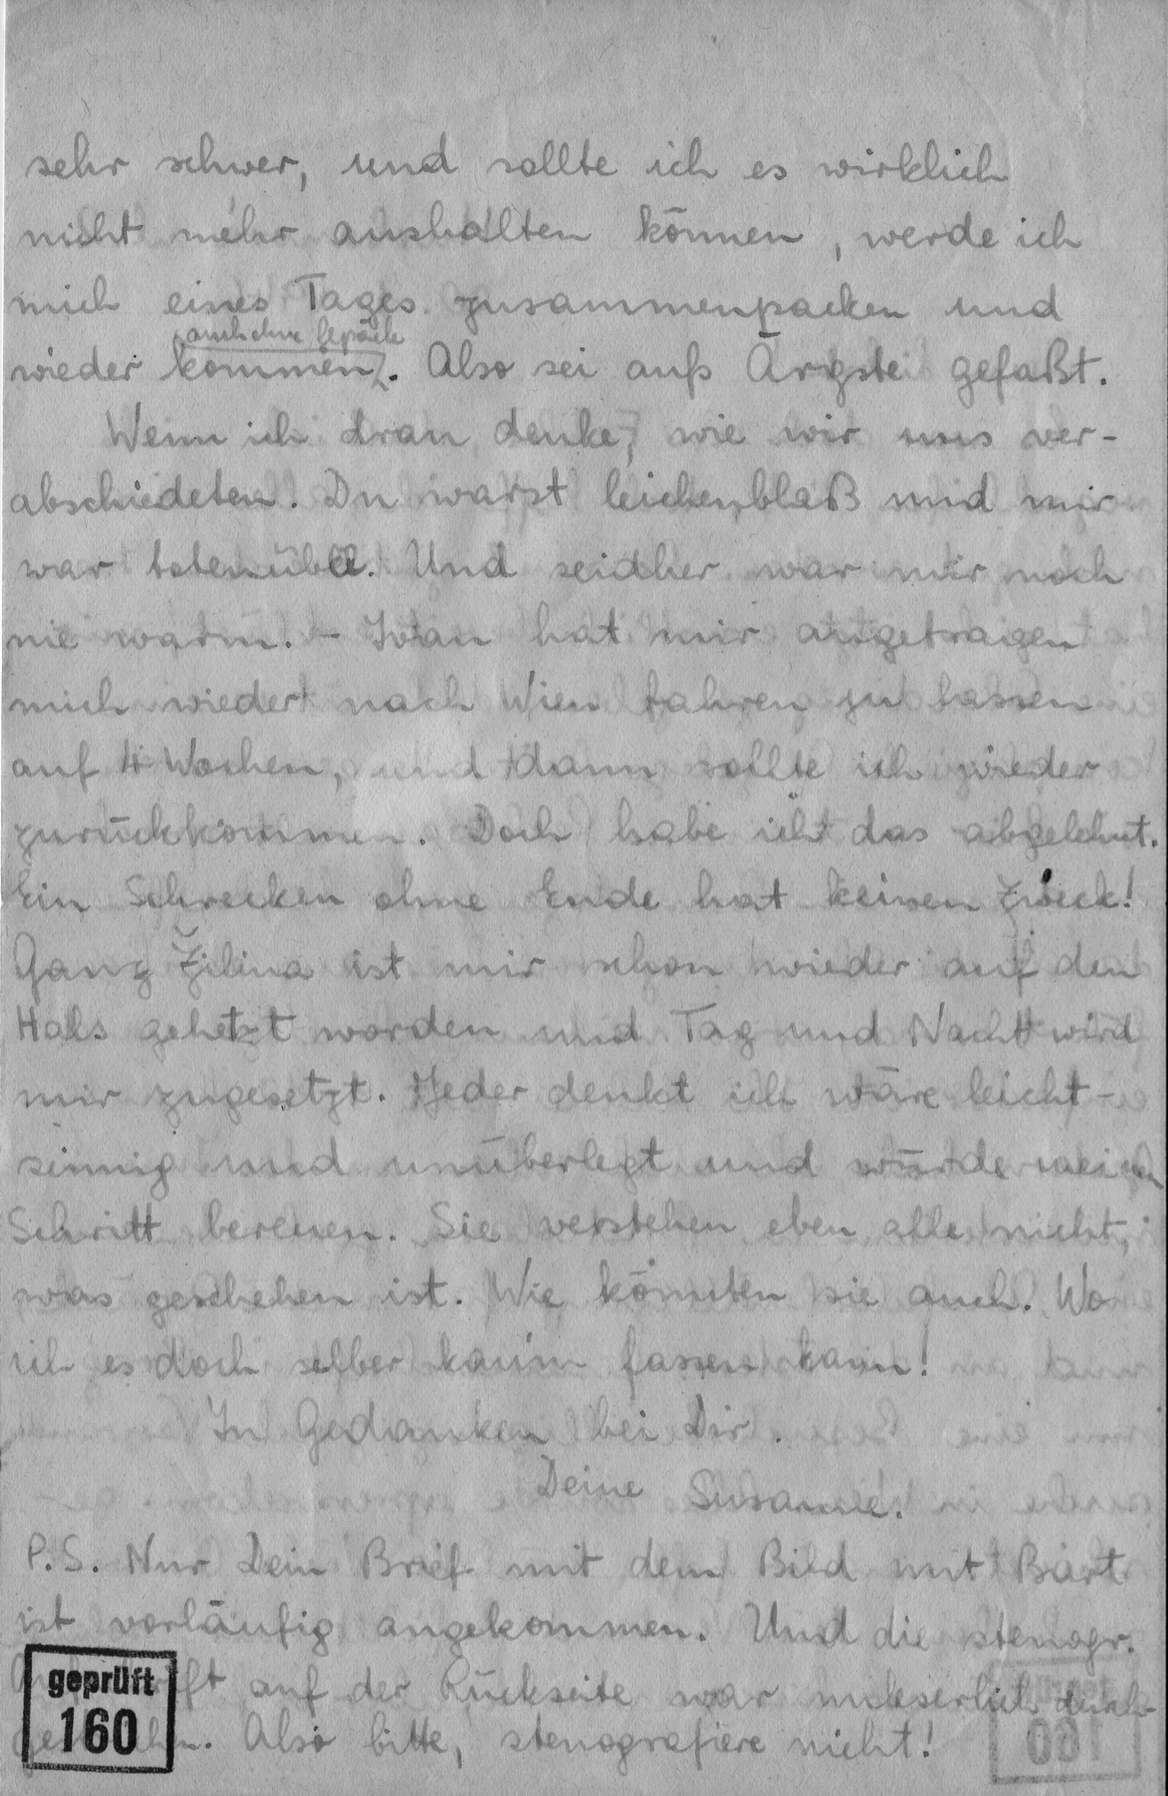 sehr schwer, und sollte ich es wirklich
nicht mehr aushalten können, werde ich
mich eines Tages zusammenpacken und
auch ohne Gepäck
wieder kommen. Also sei aufs Ärgste gefaßt.
Wenn ich dran denke, wie wir uns ver-
abschiedeten. Du warst leichenblaß und mir
war totenübel. Und seidher war mir noch
nie warm. – Ivan hat mir angetragen
mich wieder nach Wien fahren zu lassen
auf 4 Wochen, und dann sollte ich wieder
zurückkommen. Doch habe ich das abgelehnt.
Ein Schrecken ohne Ende hat keinen Zweck!
Ganz Žilina ist mir schon wieder auf den
Hals gehetzt worden und Tag und Nacht wird
mir zugesetzt. Jeder denkt ich wäre leicht-
sinnig und unüberlegt und würde meinen
Schritt bereuen. Sie verstehen eben alle nicht,
was geschehen ist. Wie könnten sie auch. Wo
ich es doch selber kaum fassen kann!
In Gedanken bei Dir.
Deine Susanne.
P.S. Nur Dein Brief mit dem Bild mit Bart
ist vorläufig angekommen. Und die stenogr.
auf der Rückseite war unleserlich durch-
Also bitte, stenografiere nicht!
geprüft
160